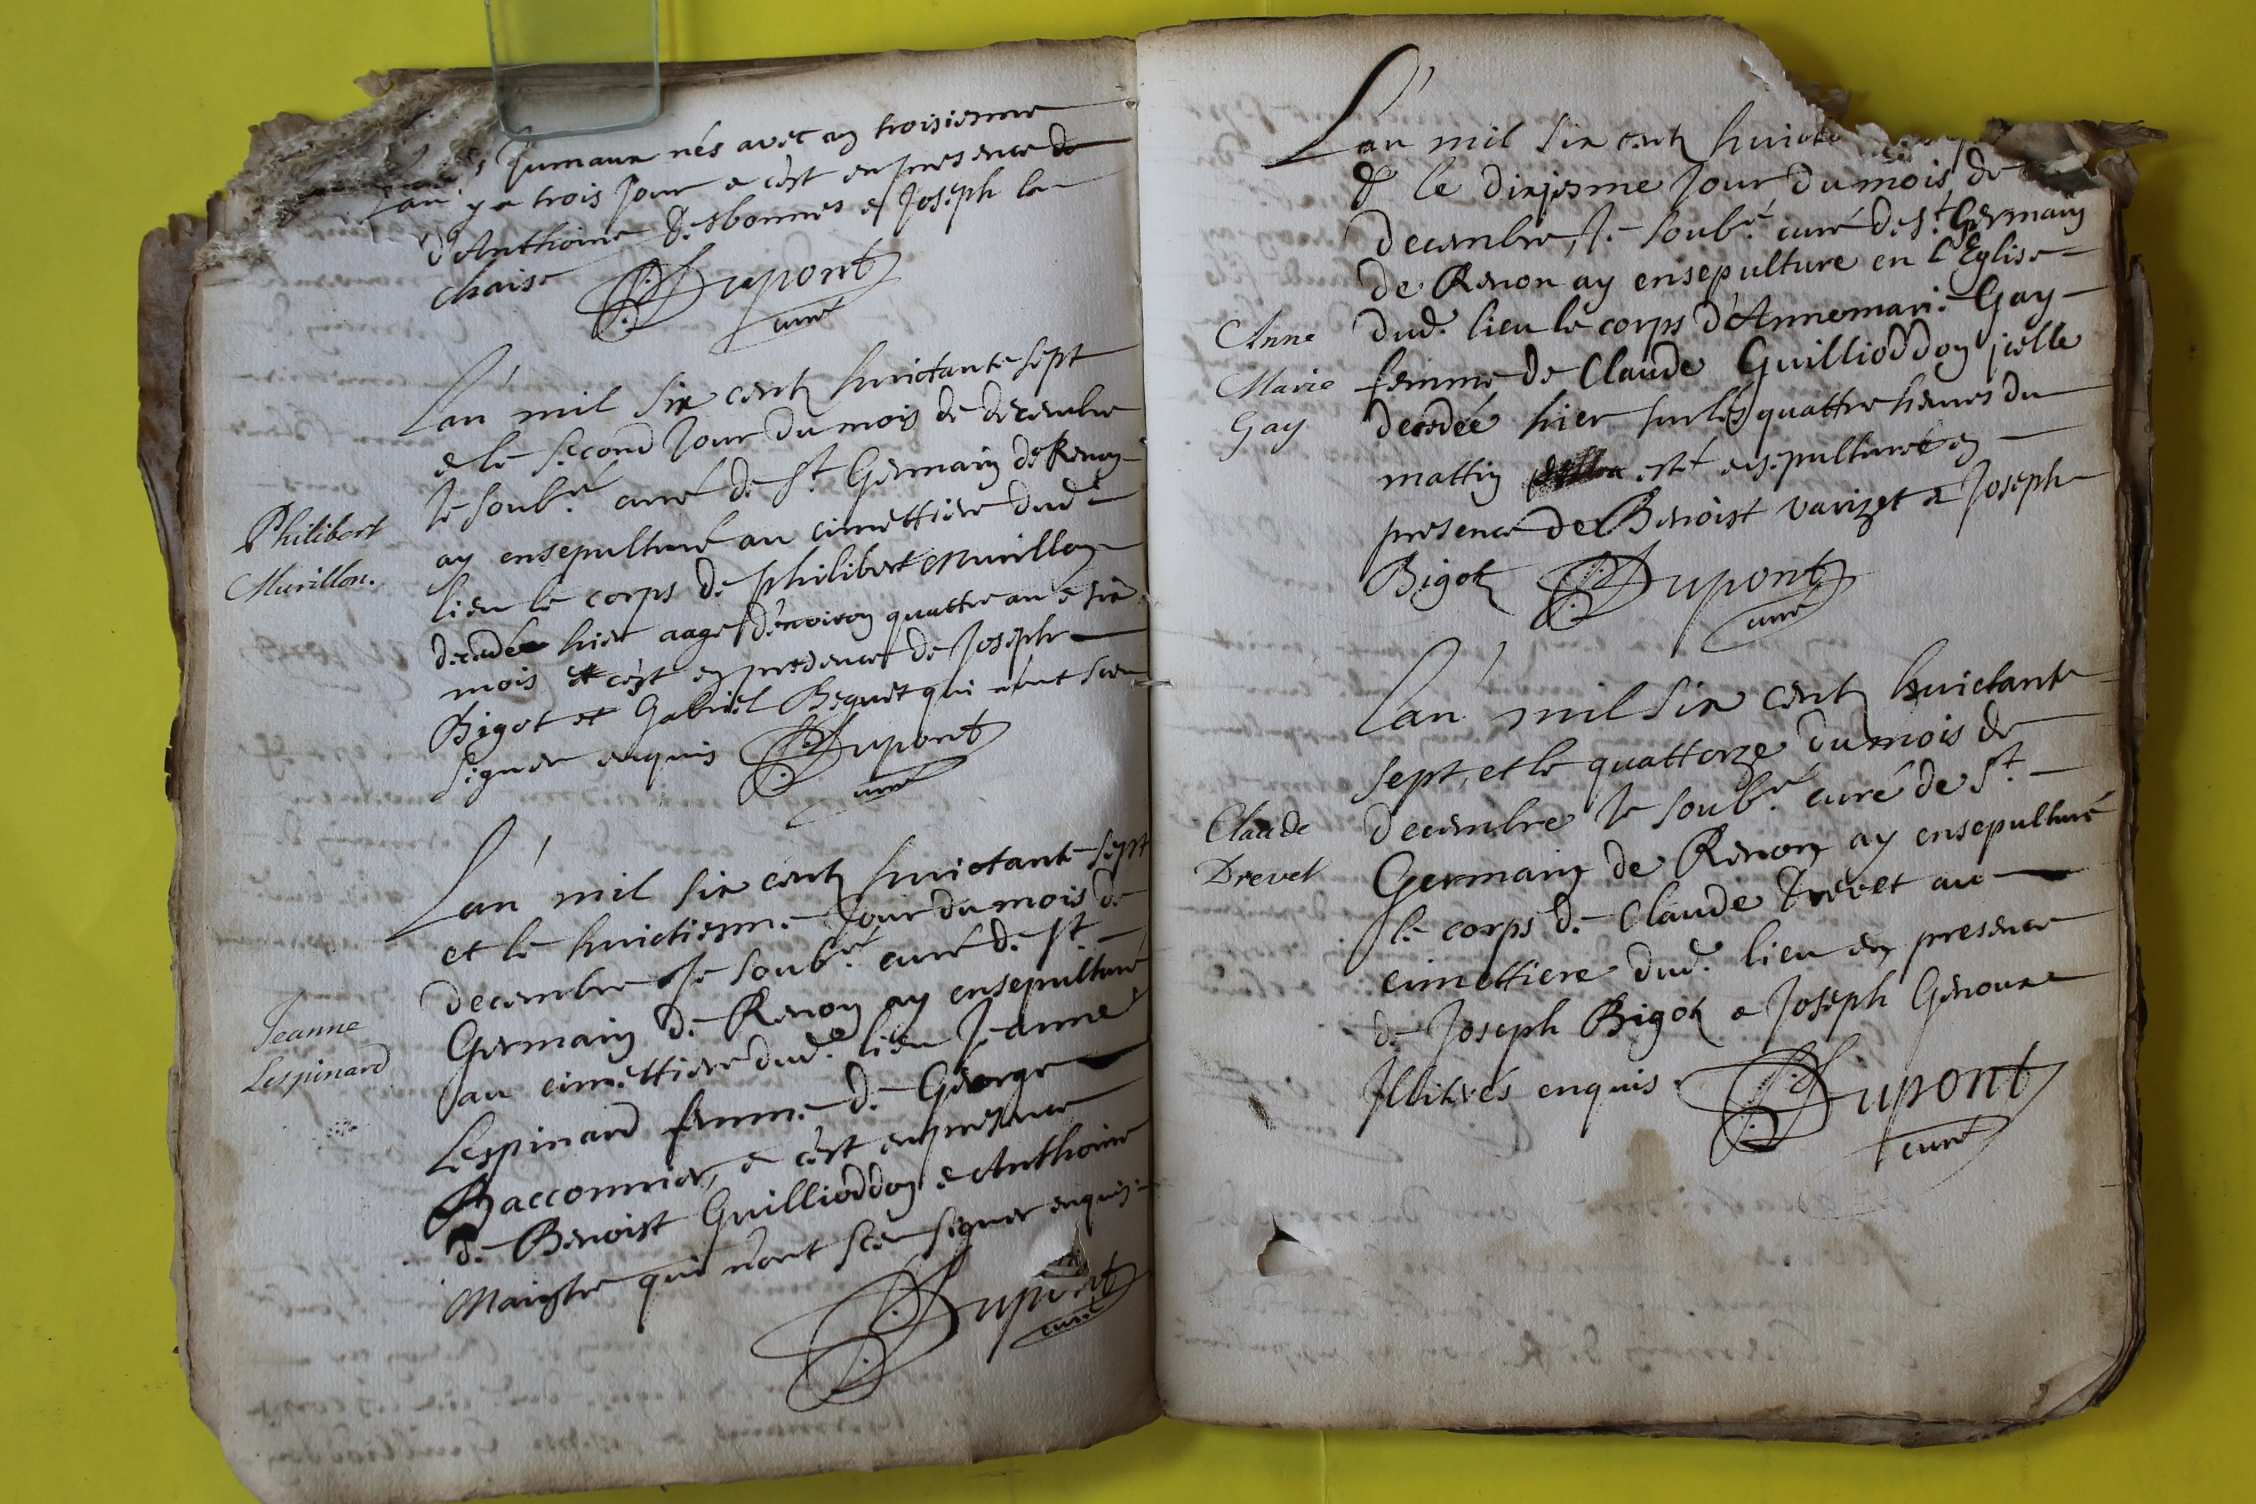 Jumaux nés avec un troisiesme
y a trois Jour e c'est en presence de
d'Anthoine Desbonnes e Joseph la
chaise Dupont
curé
L'an mil six cent huictante sept
e le second Jour du mois de decembre
Je soub.né curé de St Germain de Renon
ay ensepulturé au cimettiere dud.
Philibert
Murillon.
lieu le corps de philibert Murillon
decedée hier aage d'environ quattre an e six
mois et c'est en presence de Joseph
Bigot et Gabriel Beguet qui n'ont sceu
signer enquis Dupont
curé
L'an mil six cent huictante sept
et le huictiesme Jour du mois de
decembre Je soub.né curé de St
Germain de Renon ay ensepulturé
Jeanne
Lespinard
au cimettiere dud. lieu Jeanne
Lespinard femme de George
Racconnier, e c'est en presence
de Benoist Guillioddon e Anthoine
Maistre qui n'ont sceu signer enquis.
Dupont
curé
L'an mil six cent
& le dixiesme Jour du mois de
decembre, Je soub.né curé de St Germain
de Renon ay ensepulture en l'Eglise
Anne
Marie
Gay
dud. lieu le corps d'Annemarie Gay
femme de Claude Guillioddon icelle
decedée hier sur les quattre heures du
mattin est ensepulturée en
presence de Benoist varizet e Joseph
Bigot Dupont
curé
L'an mil six cent huictante
sept, et le quattorze du mois de
decembre Je soub.né curé de St
Claude
Drevet
Germain de Renon ay ensepulturé
le corps de Claude Drevet au
cimettiere dud. lieu en presence
de Joseph Bigot e Joseph Genoux
Illiterés enquis. Dupont
curé